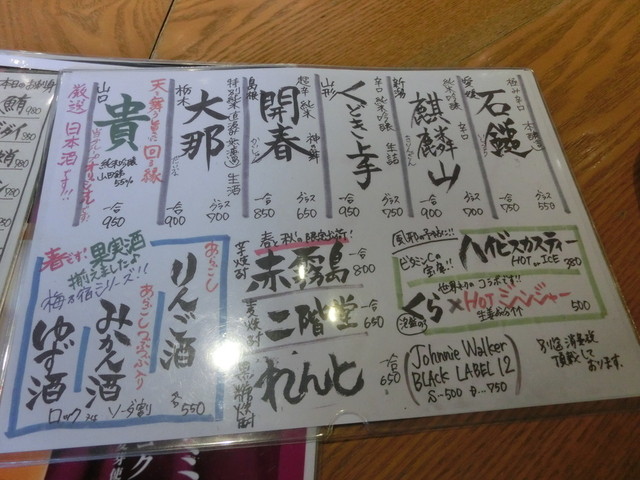 愛媛
極み辛口
石鎚
一合 750
グラス 550
新潟
純米吟醸 辛口
麒麟山
一合 900
グラス 700
山形
辛口 純米吟醸 生詰
くどき上手
一合 950
グラス 750
島根
超辛 純米
開春
一合 850
グラス 650
栃木
特別純米
無濾過 生酒
大那
一合 900
グラス 700
山口
貴
純米吟醸
山田錦
55%
一合 950
厳選 日本酒です!!
ハイビスカスティー
HOT or ICE 380
ビタミンCの宝庫!!
世界初のコラボです!!
くら×HOTジンジャー
生姜
500
春と秋の限定出荷!
芋焼酎
赤霧島
一合 800
麦焼酎
二階堂
一合 650
黒糖焼酎
れんと
一合 650
Johnnie Walker
BLACK LABEL 12
S-500 D-750
別途消費税
頂戴して
おります。
春です!
果実酒
揃えましたよ!!
梅乃宿シリーズ!!
あらごし
りんご酒
あらごしつぶつぶ入り
みかん酒
ゆず酒
ロック ソーダ割
各550
本日のお刺身
980